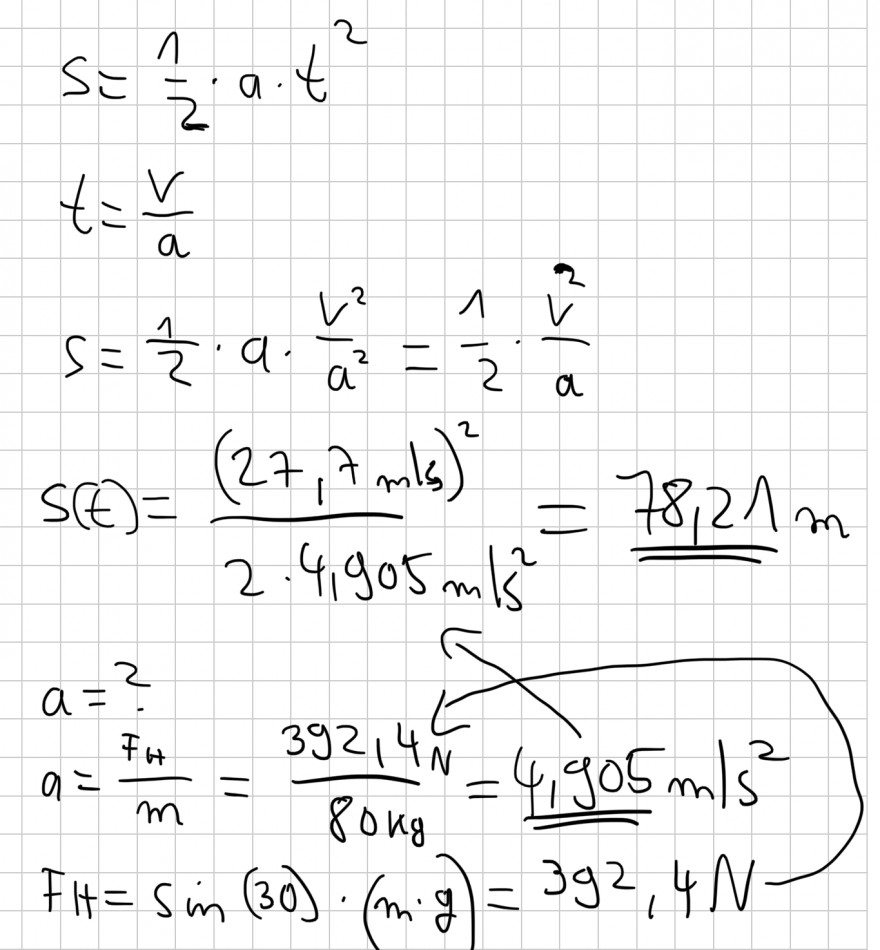 s = 1/2 · a · t²
t = v/a
s = 1/2 · a · v²/a² = 1/2 · v²/a
s(t) = (27,7 m/s)² / 2 · 4,905 m/s² = 78,21 m
a = ?
a = FH/m = 392,4 N / 80 kg = 4,905 m/s²
FH = sin (30) · (m · g) = 392,4 N